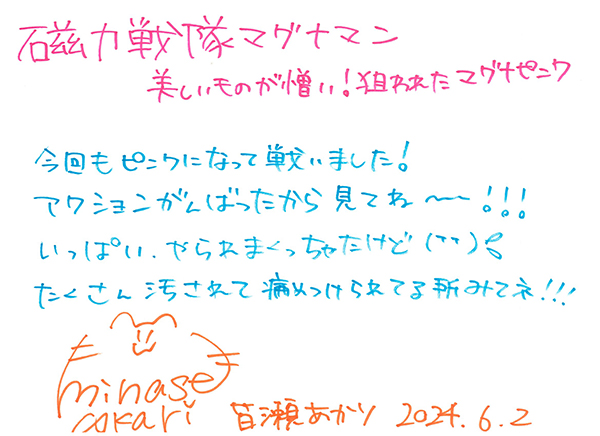 磁力戦隊マグナマン
美しいものが憎い!狙われたマグナピンク
今回もピンクになって戦いました!
アクションがんばったから見てね〜〜!!!
いっぱい、やられまくっちゃたけど(^^);
たくさん汚されて痛めつけられてる所みてネ!!!
minase
akari
皆瀬あかり 2024.6.2